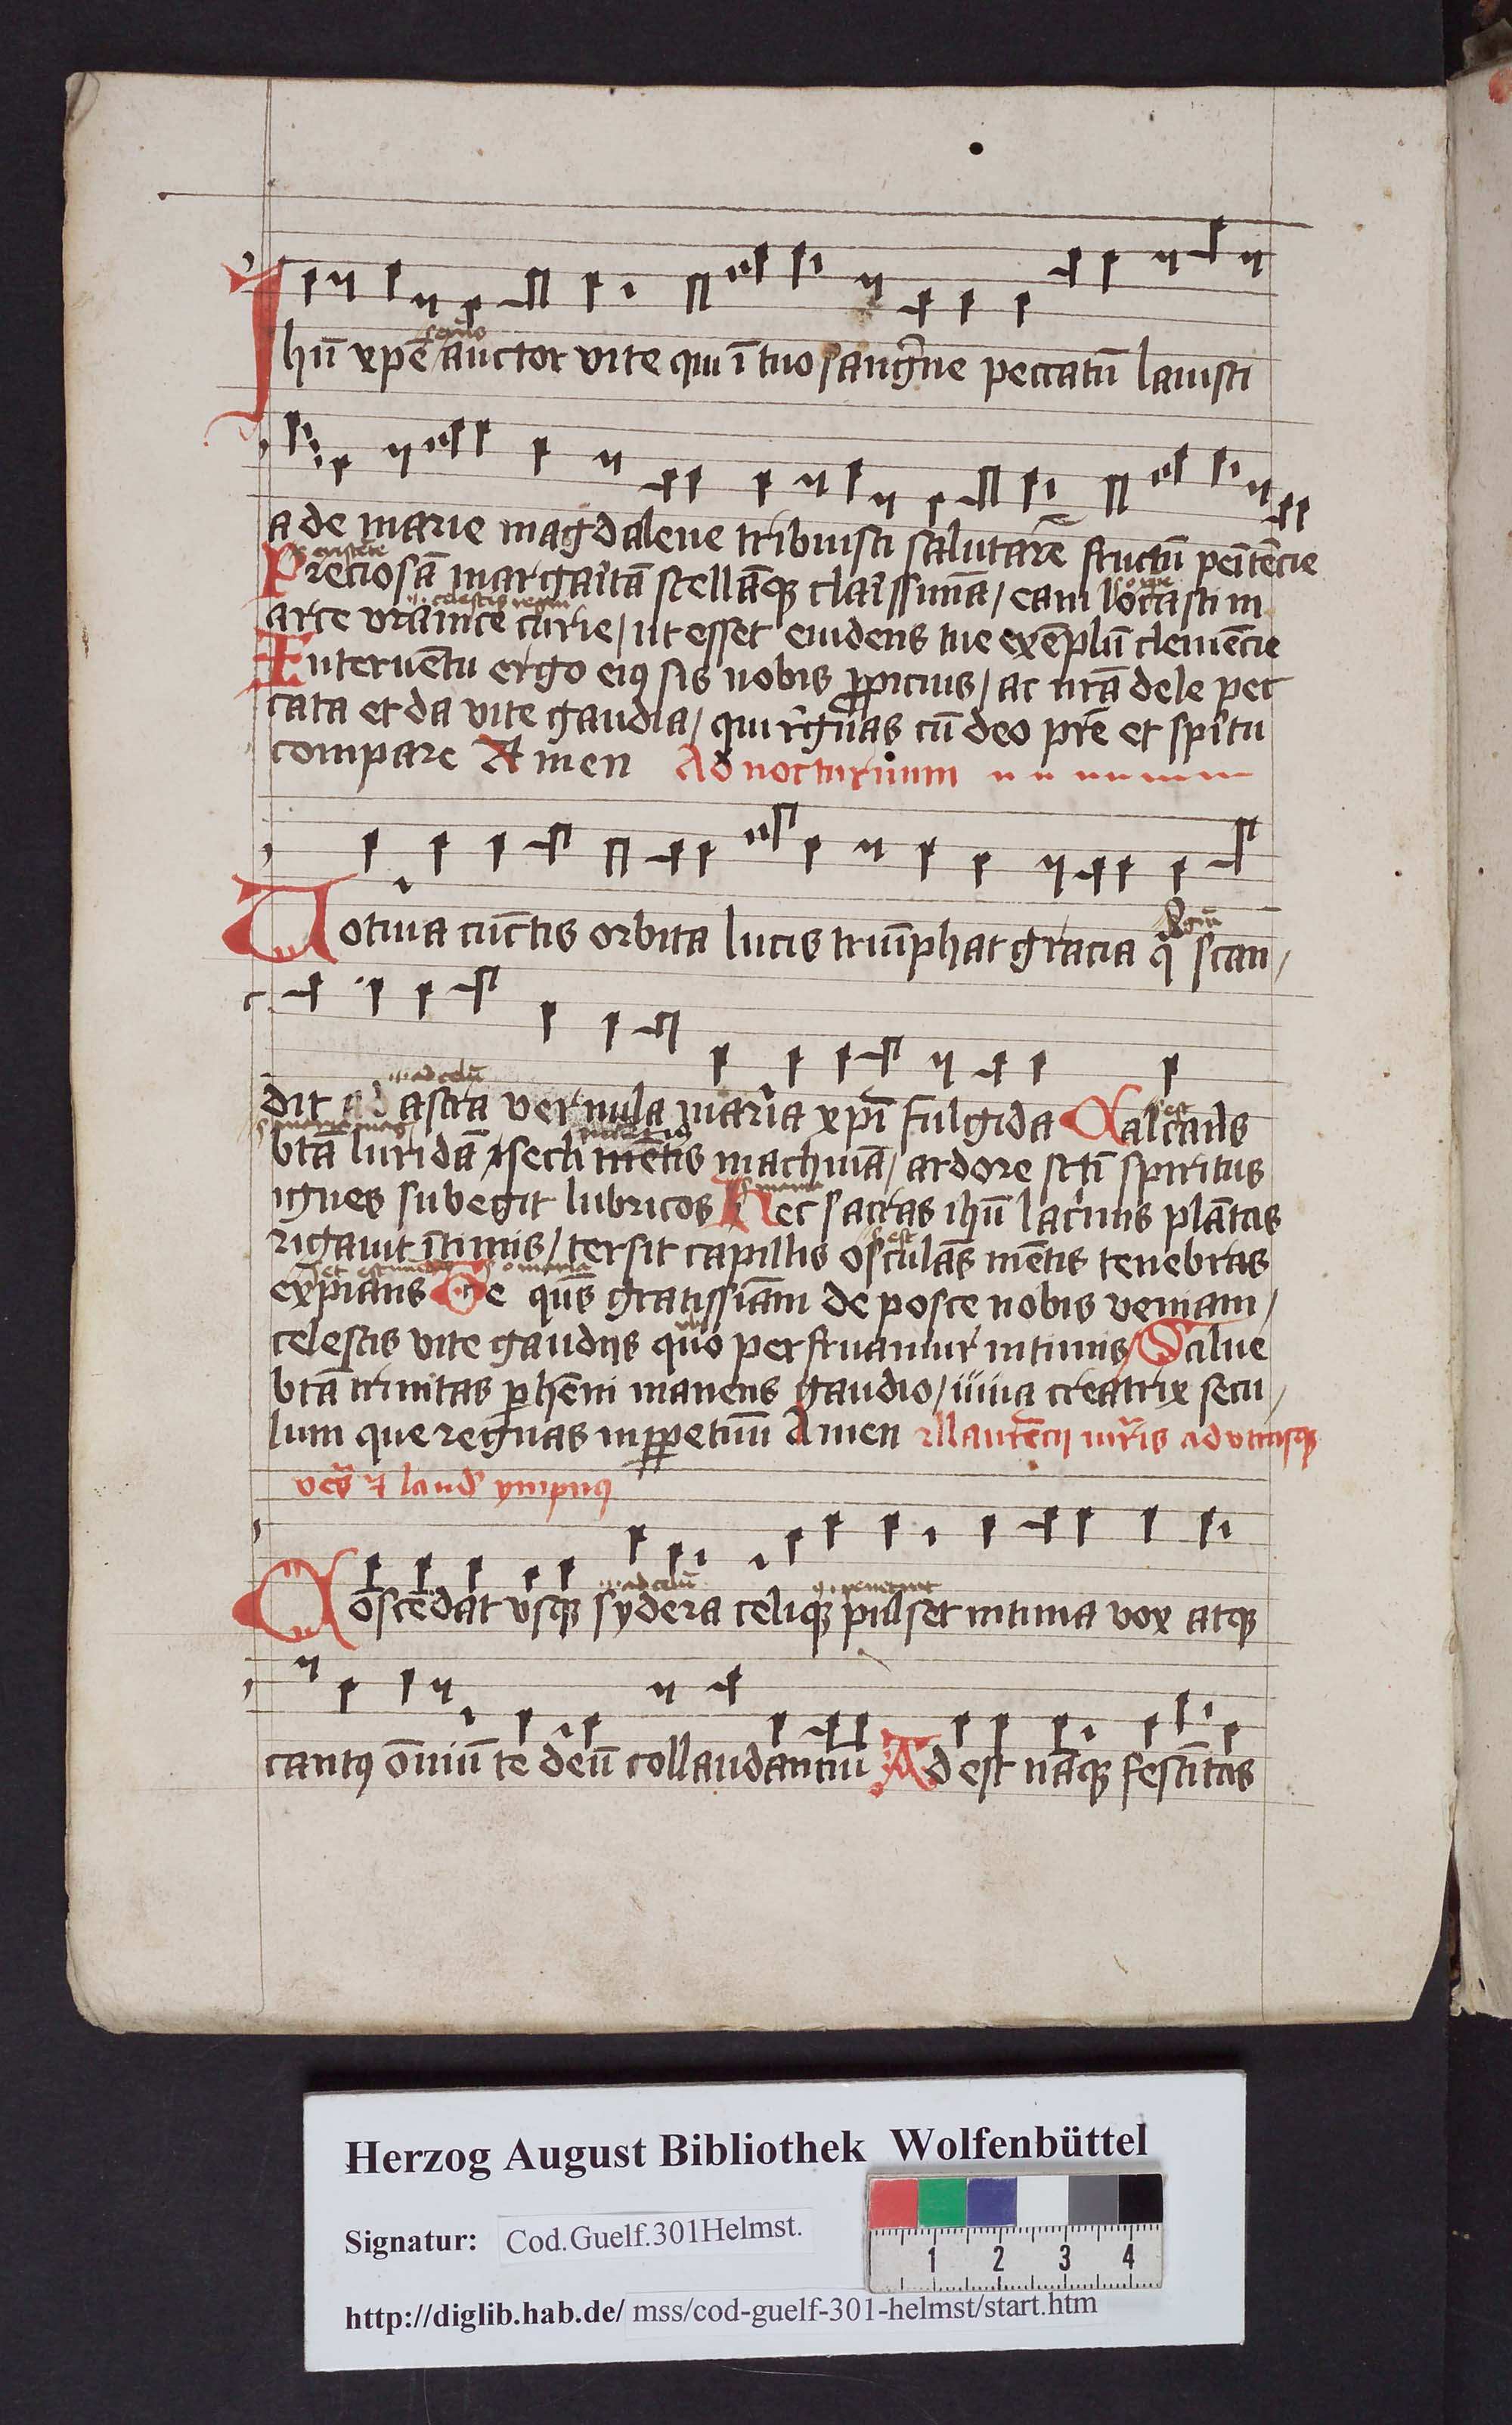 Jhū xpē auctor vite qui ī tuo sangᵉine peccatū lauisti
a de marie magdalene tribuisti salutarē fructū penitēcie
Preciosā margaritā stellāqꝫ clarissimā / eam locasti in
arce vranice curie / ut esset euidens tue exēplū clemēcie
Interuētu ergo eiꝰ sis nobis ꝓpicius / ac nrā dele pec
cata et da vite gaudia / qui rēgnas cū deo prē et spītu
compare Amen Ad nocturnum
Uotiua cūctis orbita lucis triūphat gracia q̄ scan /
dit ad astra vernula maria xpī fulgida Calcans
.i. ad celū
btā luridā secli mētis machinā / ardore sctī spiritus
ignes subegit lubricos Hec sacras ihū lacⁱmis plātas
rigauit ītimis / tersit capillis osculās mētis tenebras
expians Te qūs gratissimam de posce nobis veniam /
s o maria
celestis vite gaudiis quo perfruamur intimis / Salue
btā trinitas ꝑhēni manens gaudio / una creatrix secu /
lum que regnas inꝑpetuū Amen Laurēcii mr̄is ad vtrasqꝫ
ves̄ ⁊ laud ympnꝰ
Coscēdat vsqꝫ sydera celiqꝫ pulset intima vox atqꝫ
.i. ad celū
cantꝰ oīmiū te deū collaudantiū Adest nāqꝫ festītas
Herzog August Bibliothek Wolfenbüttel
Signatur: Cod.Guelf.301Helmst.
1 2 3 4
http://diglib.hab.de/ mss/cod-guelf-301-helmst/start.htm